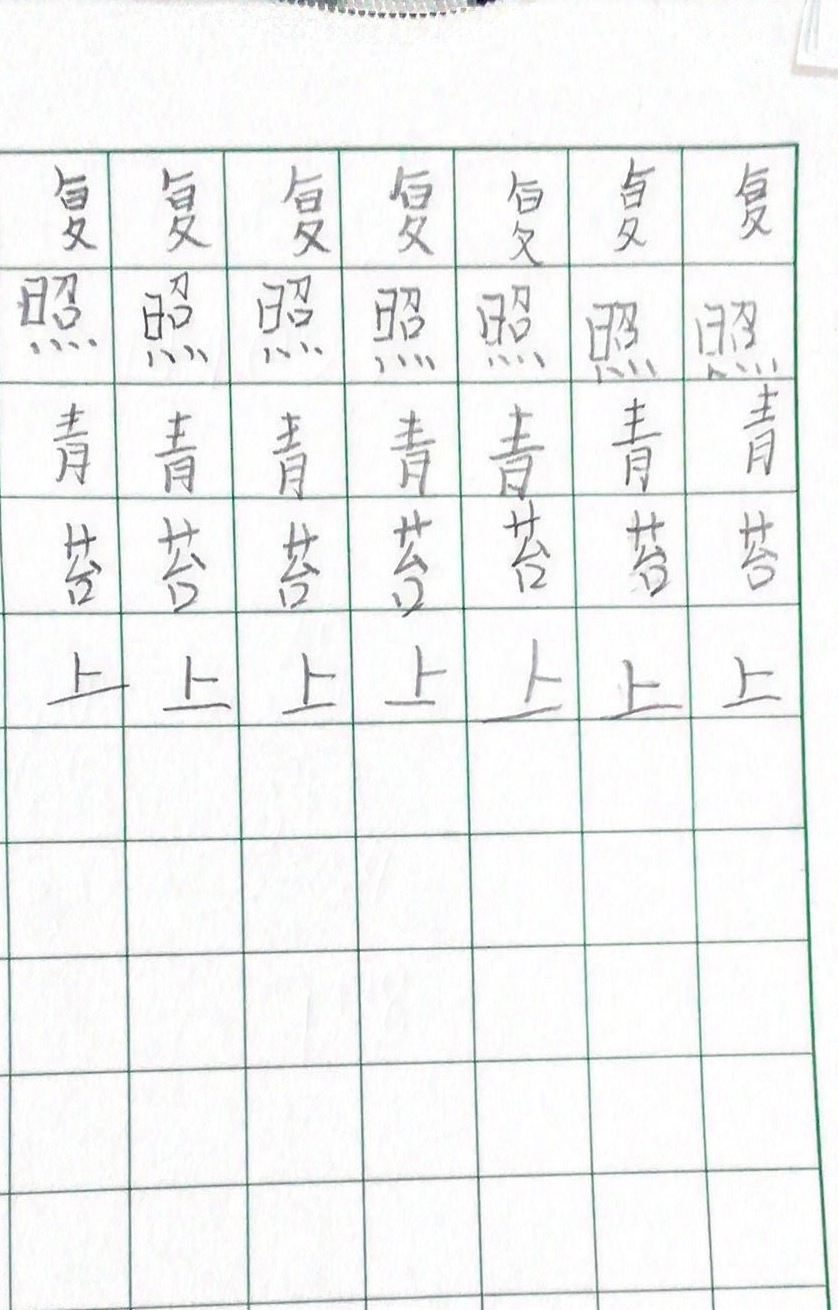 复照青苔上
复照青苔上
复照青苔上
复照青苔上
复照青苔上
复照青苔上
复照青苔上